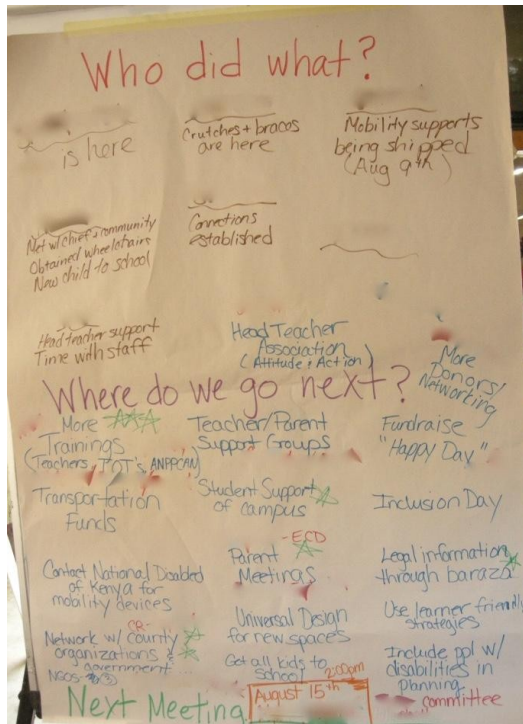 Who did what?
is here
Crutches + braces
are here
Mobility supports
being shipped
(Aug 9th)
Met w/ chief & community
Obtained wheelchairs
New child to school
Connections
established
Head teacher support
Time with staff
Head Teacher
Association
(Attitude & Action)
More
Donors/
Networking
Where do we go next?
More
Trainings
(Teachers, TOT's, ANPPCAN)
Teacher/Parent
Support Groups
Fundraise
"Happy Day"
Transportation
Funds
Student Support
of campus
Inclusion Day
Contact National Disabled
of Kenya for
mobility devices
- ECD
Parent
Meetings
Legal information
through baraza
CR-
Network w/ county
organizations &
government
NGOs
Universal Design
for new spaces
Use learner friendly
strategies
Get all kids to
school
Include ppl w/
disabilities in
planning
committee
Next Meeting
August 15th
2:00pm